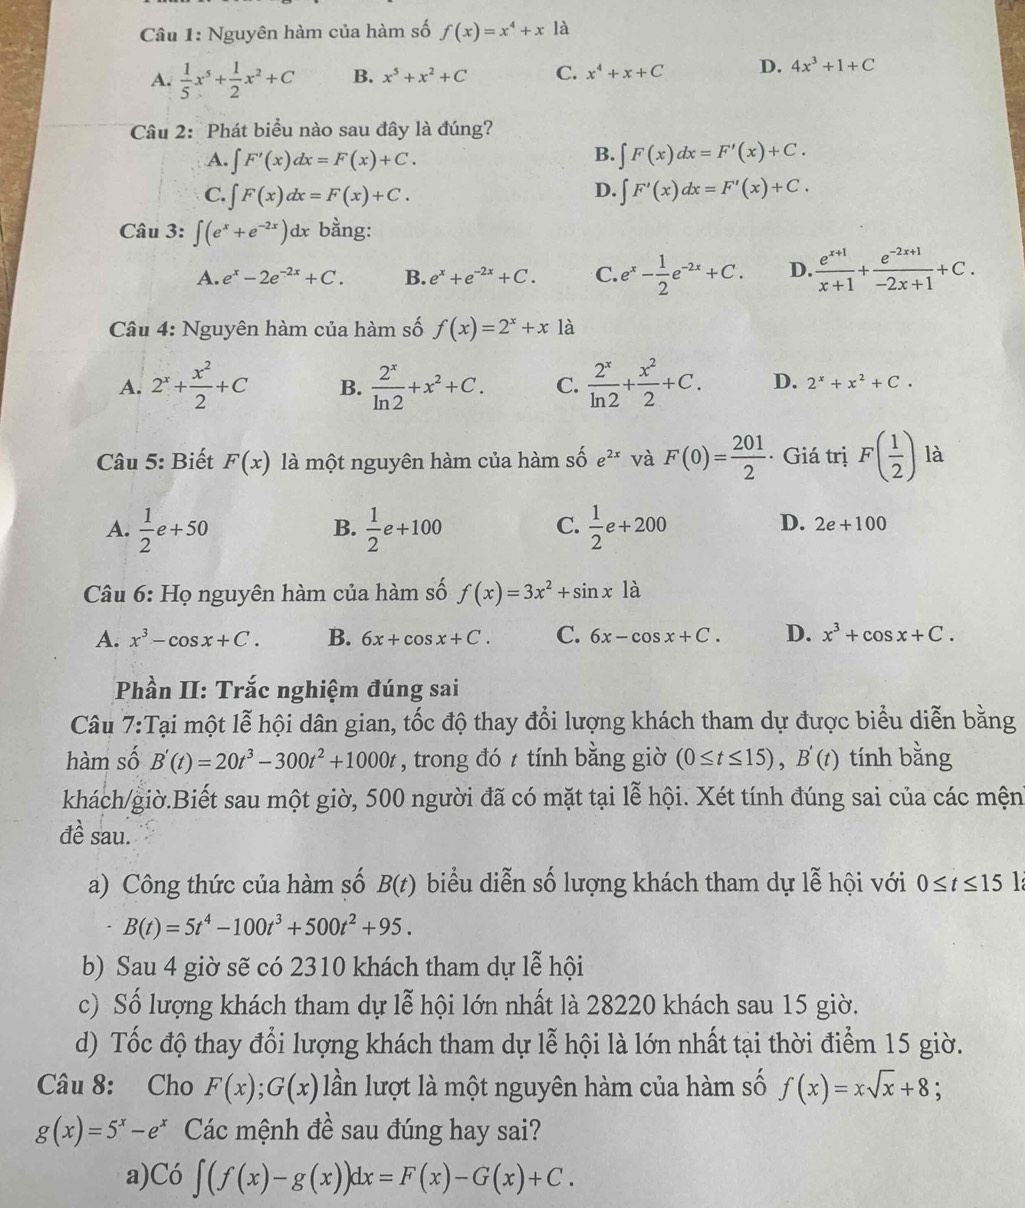 Câu 1: Nguyên hàm của hàm số f(x) = x⁴ + x là
A. 1/5 x⁵ + 1/2 x² + C B. x⁵ + x² + C C. x⁴ + x + C D. 4x³ + 1 + C
Câu 2: Phát biểu nào sau đây là đúng?
A. ∫F'(x)dx = F(x) + C. B. ∫F(x)dx = F'(x) + C.
C. ∫F(x)dx = F(x) + C. D. ∫F'(x)dx = F'(x) + C.
Câu 3: ∫(eˣ + e⁻²ˣ)dx bằng:
A. eˣ − 2e⁻²ˣ + C. B. eˣ + e⁻²ˣ + C. C. eˣ − 1/2 e⁻²ˣ + C. D. eˣ⁺¹/(x+1) + e⁻²ˣ⁺¹/(−2x+1) + C.
Câu 4: Nguyên hàm của hàm số f(x) = 2ˣ + x là
A. 2ˣ + x²/2 + C B. 2ˣ/ln2 + x² + C. C. 2ˣ/ln2 + x²/2 + C. D. 2ˣ + x² + C.
Câu 5: Biết F(x) là một nguyên hàm của hàm số e²ˣ và F(0) = 201/2. Giá trị F(1/2) là
A. 1/2 e + 50 B. 1/2 e + 100 C. 1/2 e + 200 D. 2e + 100
Câu 6: Họ nguyên hàm của hàm số f(x) = 3x² + sin x là
A. x³ − cos x + C. B. 6x + cos x + C. C. 6x − cos x + C. D. x³ + cos x + C.
Phần II: Trắc nghiệm đúng sai
Câu 7:Tại một lễ hội dân gian, tốc độ thay đổi lượng khách tham dự được biểu diễn bằng
hàm số B'(t) = 20t³ − 300t² + 1000t, trong đó t tính bằng giờ (0 ≤ t ≤ 15), B'(t) tính bằng
khách/giờ.Biết sau một giờ, 500 người đã có mặt tại lễ hội. Xét tính đúng sai của các
đề sau.
a) Công thức của hàm số B(t) biểu diễn số lượng khách tham dự lễ hội với 0 ≤ t ≤ 15
B(t) = 5t⁴ − 100t³ + 500t² + 95.
b) Sau 4 giờ sẽ có 2310 khách tham dự lễ hội
c) Số lượng khách tham dự lễ hội lớn nhất là 28220 khách sau 15 giờ.
d) Tốc độ thay đổi lượng khách tham dự lễ hội là lớn nhất tại thời điểm 15 giờ.
Câu 8: Cho F(x);G(x) lần lượt là một nguyên hàm của hàm số f(x) = x√x + 8;
g(x) = 5ˣ − eˣ Các mệnh đề sau đúng hay sai?
a)Có ∫(f(x) − g(x))dx = F(x) − G(x) + C.